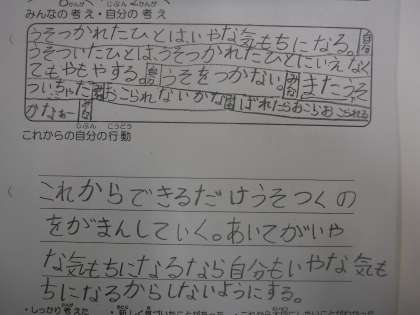 みんなの考え・自分の考え
うそつかれたひとはいやな気もちになる。
うそついたひとは、うそつかれたひとにいえなく
てもやもやする。 うそをつかない。 またうそ
ついちゃた おこられないかな ばれたらおこらおこられる
かなぁー
これからの自分の行動
これからできるだけうそつくの
をがまんしていく。あいてがいや
な気もちになるなら自分もいやな気も
ちになるからしないようにする。
・しっかり考えた